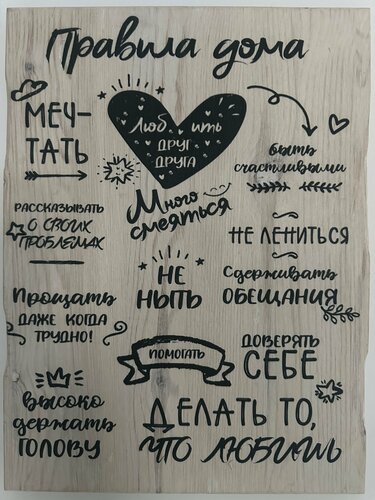 Правила дома
МЕЧ-
ТАТЬ
Люб ить
ДРУГ
ДРУГА
быть
счастливыми
РАССКАЗЫВАТЬ
О СВОИХ
ПРОБЛЕМАХ
Много
смеяться
НЕ ЛЕНИТЬСЯ
Прощать
ДАЖЕ КОГДА
ТРУДНО!
НЕ
НЫТЬ
Сдерживать
ОБЕЩАНИЯ
ПОМОГАТЬ
ДОВЕРЯТЬ
СЕБЕ
высоко
держать
ГОЛОВУ
ДЕЛАТЬ ТО,
ЧТО ЛЮБИШЬ